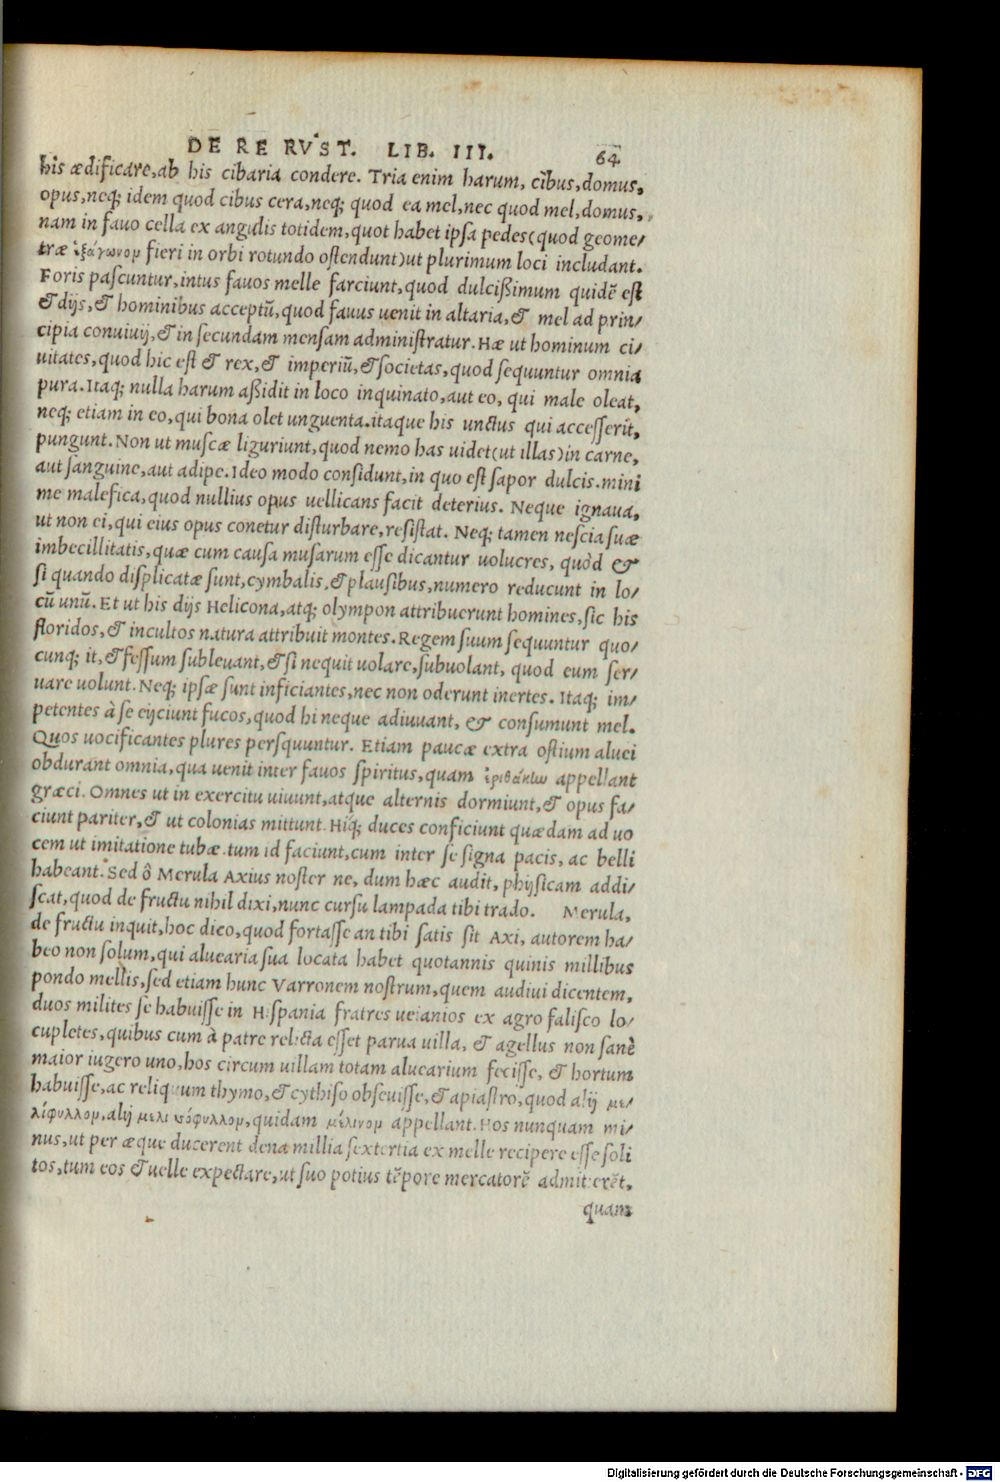 DE RE RVST. LIB. III. 64
his ædificare,ab his cibaria condere. Tria enim harum, cibus,domus,
opus,neq; idem quod cibus cera,neq; quod ea mel,nec quod mel,domus,
nam in fauo cella ex angulis totidem,quot habet ipſa pedes(quod geome/
træ ἑξάγωνομ fieri in orbi rotundo oſtendunt)ut plurimum loci includant.
Foris paſcuntur,intus fauos melle farciunt,quod dulcißimum quidē eſt
& dijs,& hominibus acceptū,quod fauus uenit in altaria,& mel ad prin/
cipia conuiuij,& in ſecundam menſam adminiſtratur. Hæ ut hominum ci/
uitates,quod hic eſt & rex,& imperiū,& ſocietas,quod ſequuntur omnia
pura. Itaq; nulla harum aßidit in loco inquinato,aut eo, qui male oleat,
neq; etiam in eo,qui bona olet unguenta.itaque his unctus qui acceſſerit,
pungunt. Non ut muſcæ liguriunt,quod nemo has uidet(ut illas)in carne,
aut ſanguine,aut adipe. Ideo modo conſidunt,in quo eſt ſapor dulcis.mini
me malefica,quod nullius opus uellicans facit deterius. Neque ignaua,
ut non ei,qui eius opus conetur diſturbare,reſiſtat. Neq; tamen neſcia ſuæ
imbecillitatis,quæ cum cauſa muſarum eſſe dicantur uolucres, quòd &
ſi quando diſplicatæ ſunt,cymbalis,& plauſibus,numero reducunt in lo/
cū unū. Et ut his dijs Helicona,atq; olympon attribuerunt homines,ſic his
floridos,& incultos natura attribuit montes. Regem ſuum ſequuntur quo/
cunq; it,& feſſum ſubleuant,& ſi nequit uolare,ſubuolant, quod eum ſer/
uare uolunt. Neq; ipſæ ſunt inficiantes,nec non oderunt inertes. Itaq; im/
petentes à ſe eijciunt fucos,quod hi neque adiuuant, & conſumunt mel.
Quos uocificantes plures perſquuntur. Etiam paucæ extra oſtium aluei
obdurant omnia,qua uenit inter fauos ſpiritus,quam ἐριθάκlω appellant
græci. Omnes ut in exercitu uiuunt,atque alternis dormiunt,& opus fa/
ciunt pariter,& ut colonias mittunt. Hiq; duces conficiunt quædam ad uo
cem ut imitatione tubæ.tum id faciunt,cum inter ſe ſigna pacis, ac belli
habeant. Sed ô Merula Axius noſter ne, dum hæc audit, phijſicam addi/
ſcat,quod de fructu nihil dixi,nunc curſu lampada tibi trado. Merula,
de fructu inquit,hoc dico,quod fortaſſe an tibi ſatis ſit Axi, autorem ha/
beo non ſolum,qui aluearia ſua locata habet quotannis quinis millibus
pondo mellis,ſed etiam hunc Varronem noſtrum,quem audiui dicentem,
duos milites ſe habuiſſe in Hiſpania fratres ueianios ex agro faliſco lo/
cupletes,quibus cum à patre relicta eſſet parua uilla, & agellus non ſanè
maior iugero uno,hos circum uillam totam aluearium feciſſe, & hortum
habuiſſe,ac reliquum thymo,& cythiſo obſeuiſſe,& apiaſtro,quod alij με/
λίφυλλομ,alij μελισσόφυλλομ,quidam μέλινομ appellant. Hos nunquam mi/
nus,ut per æque ducerent dena millia ſextertia ex melle recipere eſſe ſoli
tos,tum eos & uelle expectare,ut ſuo potius tēpore mercatorē admitterēt,
quam
Digitalisierung gefördert durch die Deutsche Forschungsgemeinschaft - DFG